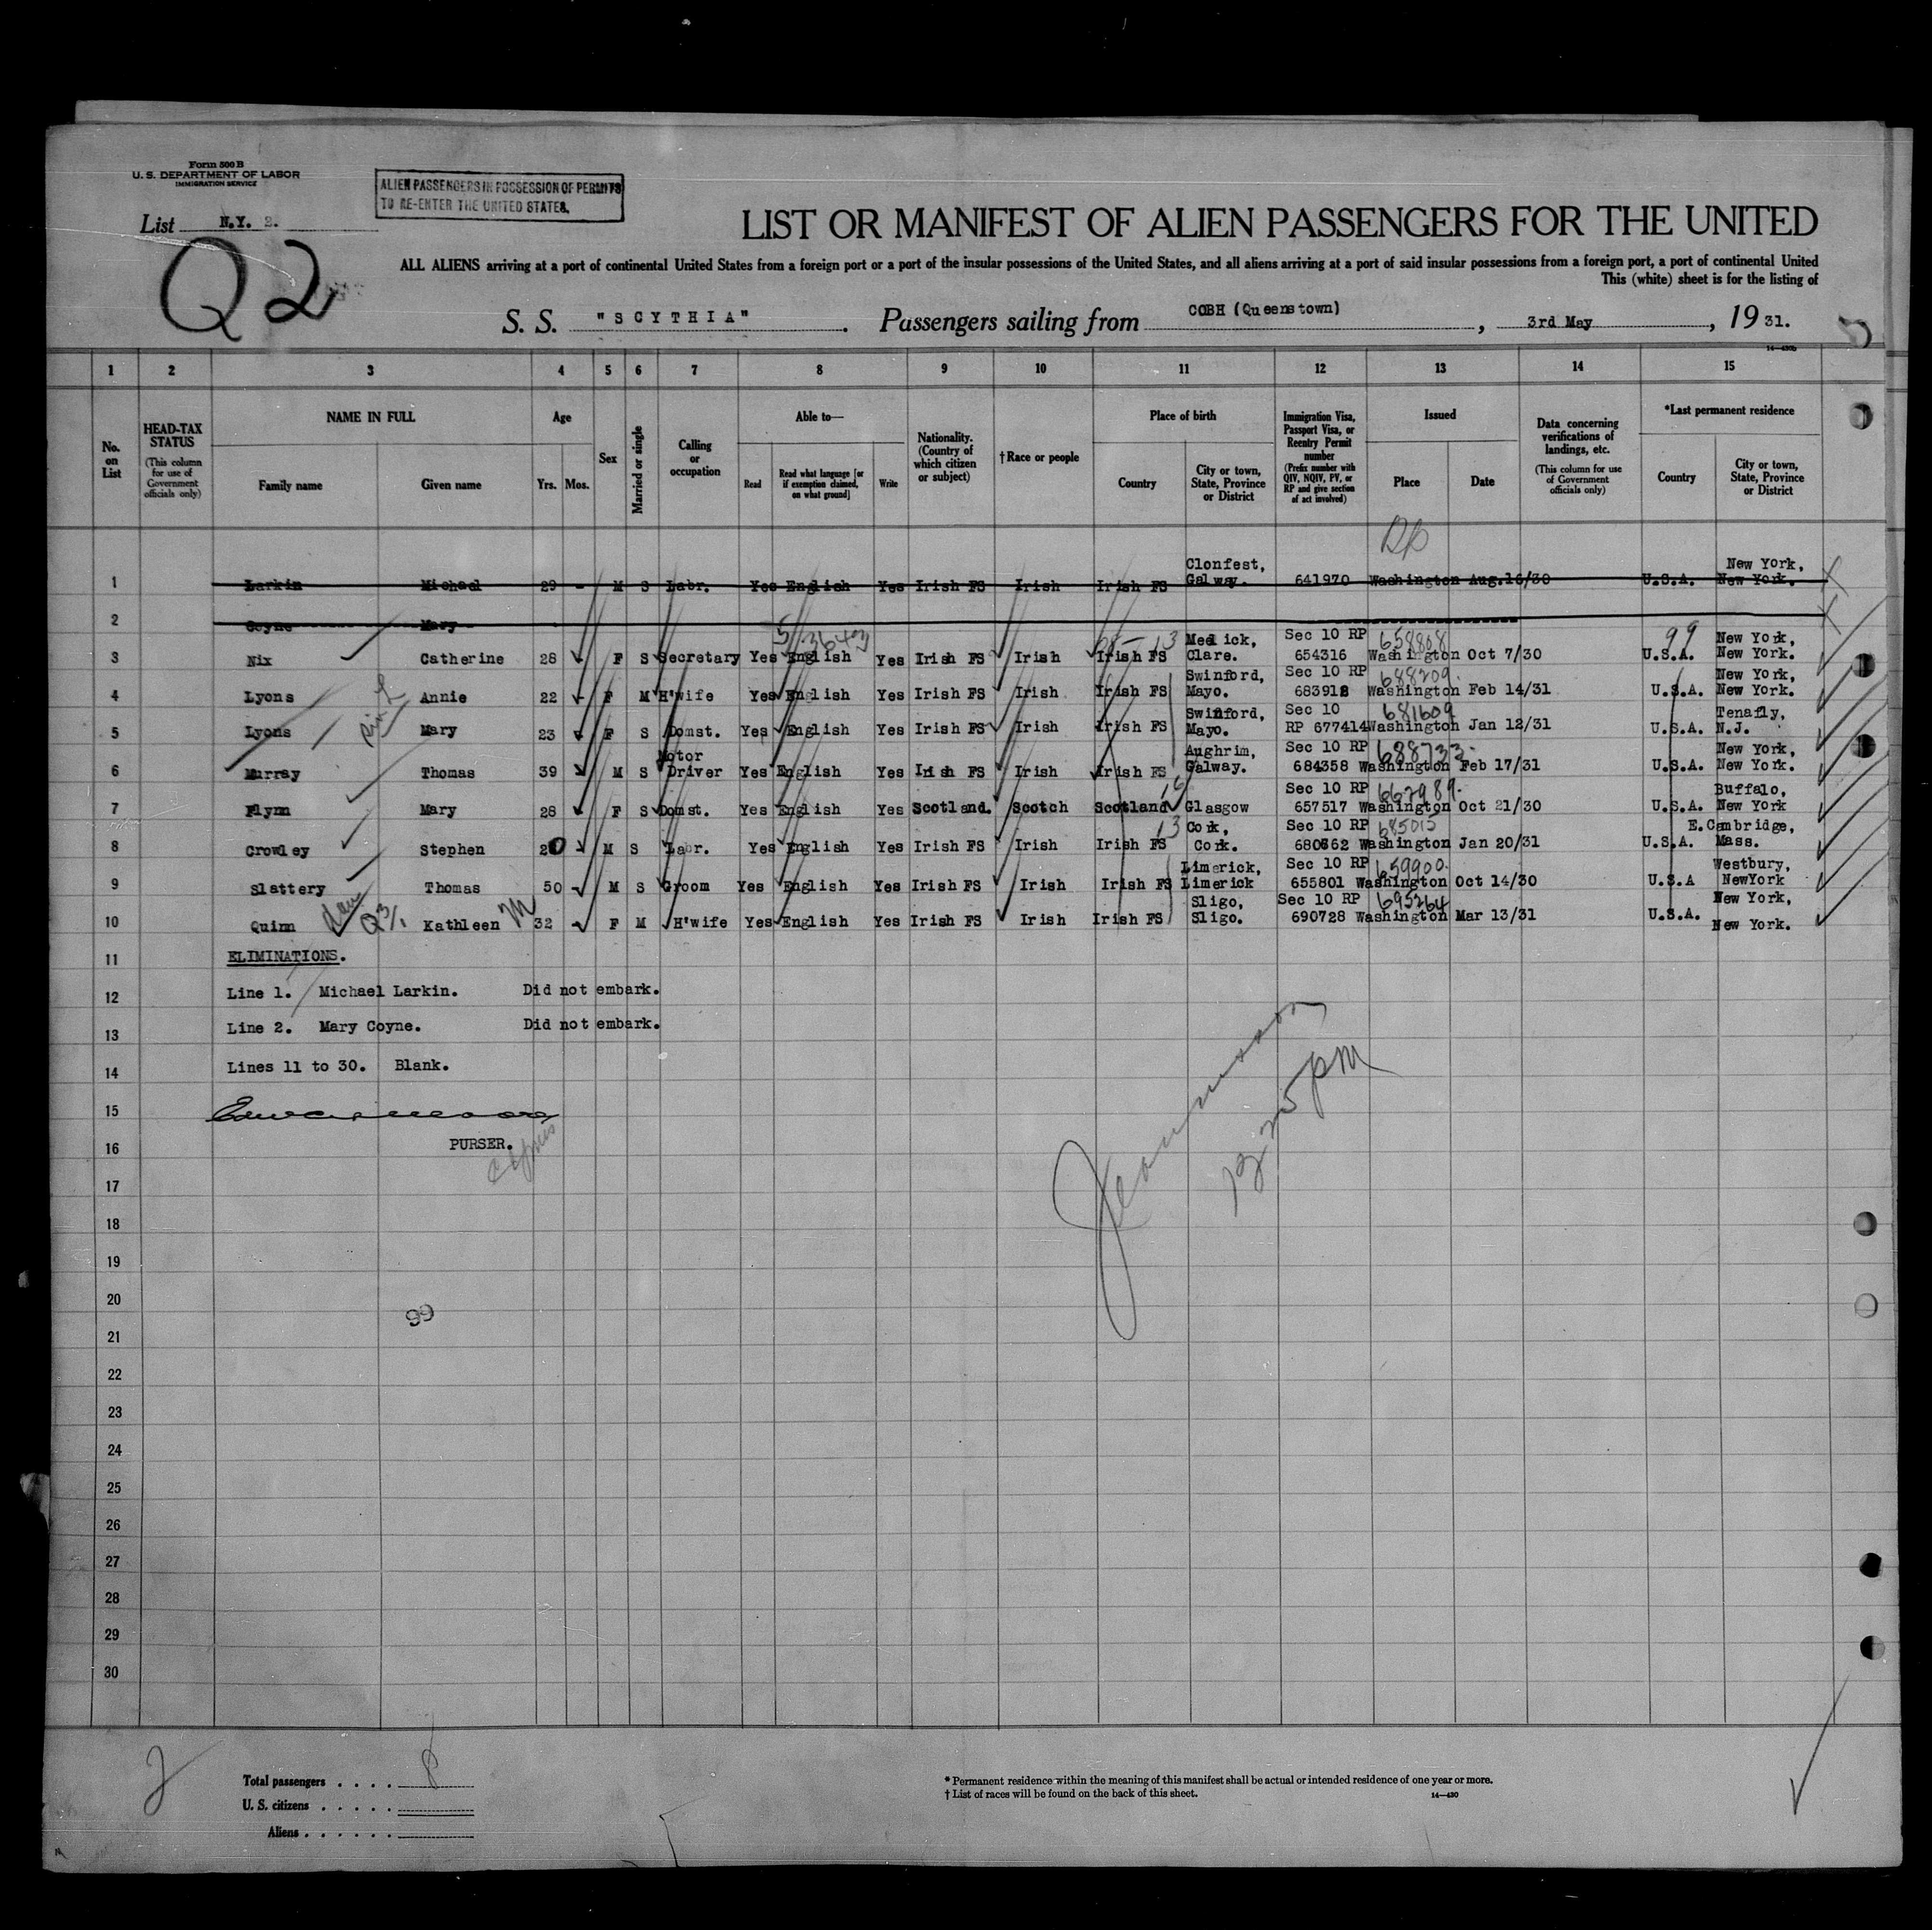 Form 500 B
U. S. DEPARTMENT OF LABOR
IMMIGRATION SERVICE
ALIEN PASSENGERS IN POSSESSION OF PERMITS
TO RE-ENTER THE UNITED STATES.
List N.Y. 2.
Q2
LIST OR MANIFEST OF ALIEN PASSENGERS FOR THE UNITED
ALL ALIENS arriving at a port of continental United States from a foreign port or a port of the insular possessions of the United States, and all aliens arriving at a port of said insular possessions from a foreign port, a port of continental United
This (white) sheet is for the listing of
S. S. "SCYTHIA". Passengers sailing from COBH (Queenstown), 3rd May, 19 31.
14-430b
1 2 3 4 5 6 7 8 9 10 11 12 13 14 15
No. on List
HEAD-TAX STATUS (This column for use of Government officials only)
NAME IN FULL Family name Given name
Age Yrs. Mos.
Sex
Married or single
Calling or occupation
Able to— Read Read what language [or if exemption claimed, on what ground] Write
Nationality. (Country of which citizen or subject)
†Race or people
Place of birth Country City or town, State, Province or District
Immigration Visa, Passport Visa, or Reentry Permit number (Prefix number with QIV, NQIV, PV, or RP and give section of act involved)
Issued Place Date
Data concerning verifications of landings, etc. (This column for use of Government officials only)
*Last permanent residence Country City or town, State, Province or District
1 Larkin Michael 29 - M S Labr. Yes English Yes Irish FS Irish Irish FS Clonfest, Galway. 641970 Washington Aug.16/30 U.S.A. New York, New York. X
2 Coyne Mary X
5/36403 13 99
3 Nix Catherine 28 F S Secretary Yes English Yes Irish FS Irish Irish FS Meelick, Clare. Sec 10 RP 654316 658808 Washington Oct 7/30 U.S.A. New York, New York.
4 Lyons Annie 22 - F M H'wife Yes English Yes Irish FS Irish Irish FS Swinford, Mayo. Sec 10 RP 683918 688209. Washington Feb 14/31 U.S.A. New York, New York.
5 Lyons Mary 23 F S Domst. Yes English Yes Irish FS Irish Irish FS Swinford, Mayo. Sec 10 RP 677414 681609 Washington Jan 12/31 U.S.A. Tenafly, N.J.
6 Murray Thomas 39 M S Motor Driver Yes English Yes Irish FS Irish Irish FS Aughrim, Galway. Sec 10 RP 684358 688733. Washington Feb 17/31 U.S.A. New York, New York.
7 Flynn Mary 28 F S Domst. Yes English Yes Scotland. Scotch Scotland Glasgow Sec 10 RP 657517 662989. Washington Oct 21/30 U.S.A. Buffalo, New York
8 Crowley Stephen 20 - M S Labr. Yes English Yes Irish FS Irish Irish FS 13 Cork, Cork. Sec 10 RP 680662 685015 Washington Jan 20/31 U.S.A. E.Cambridge, Mass.
9 Slattery Thomas 50 - M S Groom Yes English Yes Irish FS Irish Irish FS Limerick, Limerick Sec 10 RP 655801 659900. Washington Oct 14/30 U.S.A Westbury, NewYork
10 Quinn Q3/1 Kathleen M 32 - F M H'wife Yes English Yes Irish FS Irish Irish FS Sligo, Sligo. Sec 10 RP 690728 695264 Washington Mar 13/31 U.S.A. New York, New York.
11 ELIMINATIONS.
12 Line 1. Michael Larkin. Did not embark.
13 Line 2. Mary Coyne. Did not embark.
14 Lines 11 to 30. Blank.
15
16 PURSER.
12 25 pm
17
18
19
20
99
21
22
23
24
25
26
27
28
29
30
2
Total passengers . . . . 8
U. S. citizens . . . . .
Aliens . . . . . .
* Permanent residence within the meaning of this manifest shall be actual or intended residence of one year or more.
† List of races will be found on the back of this sheet.
14-430